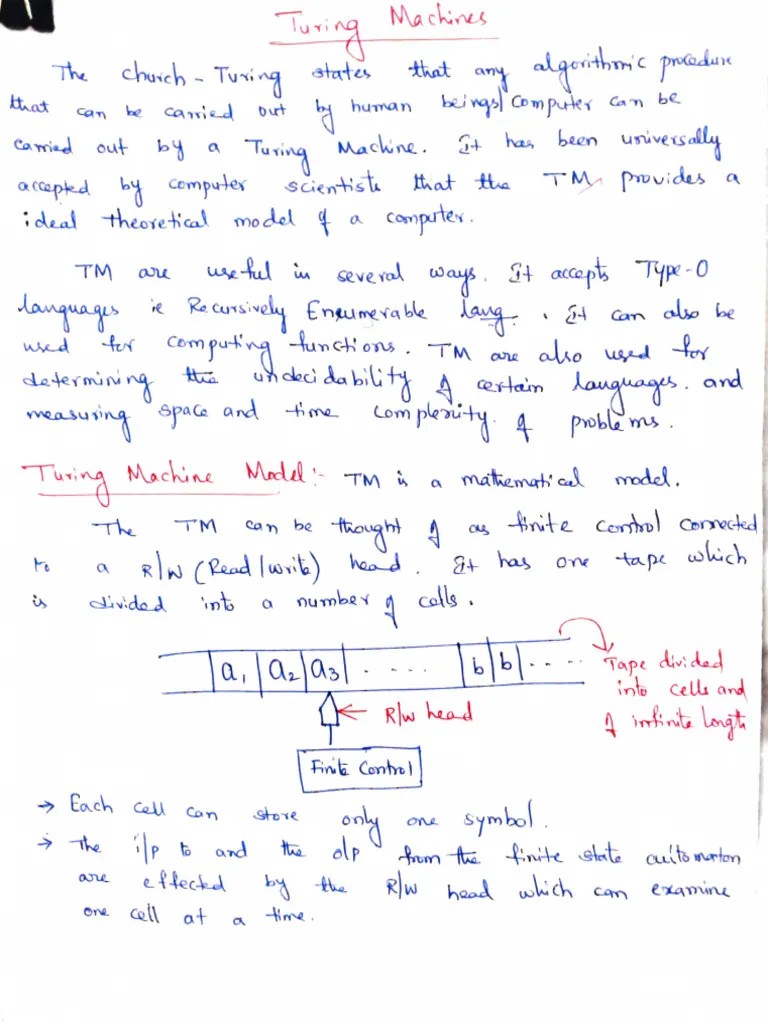 Turing Machines
The Church - Turing states that any algorithmic procedure
that can be carried out by human beings/computer can be
carried out by a Turing Machine. It has been universally
accepted by computer scientists that the TM provides a
ideal theoretical model of a computer.
TM are useful in several ways. It accepts Type-0
languages ie Recursively Eneumerable lang. . It can also be
used for computing functions. TM are also used for
determining the undecidability of certain languages. and
measuring space and time complexity of problems.
Turing Machine Model:- TM is a mathematical model.
The TM can be thought of as finite control connected
to a R/W (Read/write) head. It has one tape which
is divided into a number of cells.
a1 a2 a3 . .... b b ....
Tape divided
into cells and
of infinite length
R/W head
Finite Control
→ Each cell can store only one symbol.
→ The i/p to and the o/p from the finite state automaton
are effected by the R/W head which can examine
one cell at a time.